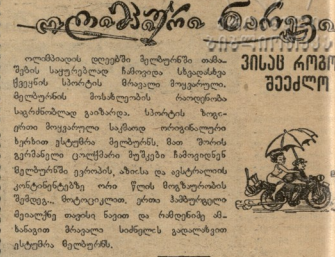 ოლიმპიური ნარევი
ვისაც როგო
შეეძლო
ოლიმპიადის დღეებში მელბურნში თამა-
შების საყურებლად ჩამოვიდა სხვადასხვა
ქვეყნის სპორტის მრავალი მოყვარული.
მელბურნის მოსახლეობის რაოდენობა
საგრძნობლად გაიზარდა. სპორტის ზოგი-
ერთი მოყვარული საკმაოდ ორიგინალური
ხერხით ესტუმრა მელბურნს. მათ შორის
გერმანელი ცოლქმარი მუშკები ჩამოვიდნენ
მელბურნში ევროპის, აზიისა და ავსტრალიის
კონტინენტებზე ორი წლის მოგზაურობის
შემდეგ... მოტოციკლით. ერთი ჰამბურგელი
მეიალქნე თავისი ნავით და რამდენიმე ამ-
ხანაგით მრავალი სიძნელის გადალახვით
ესტუმრა მელბურნს.